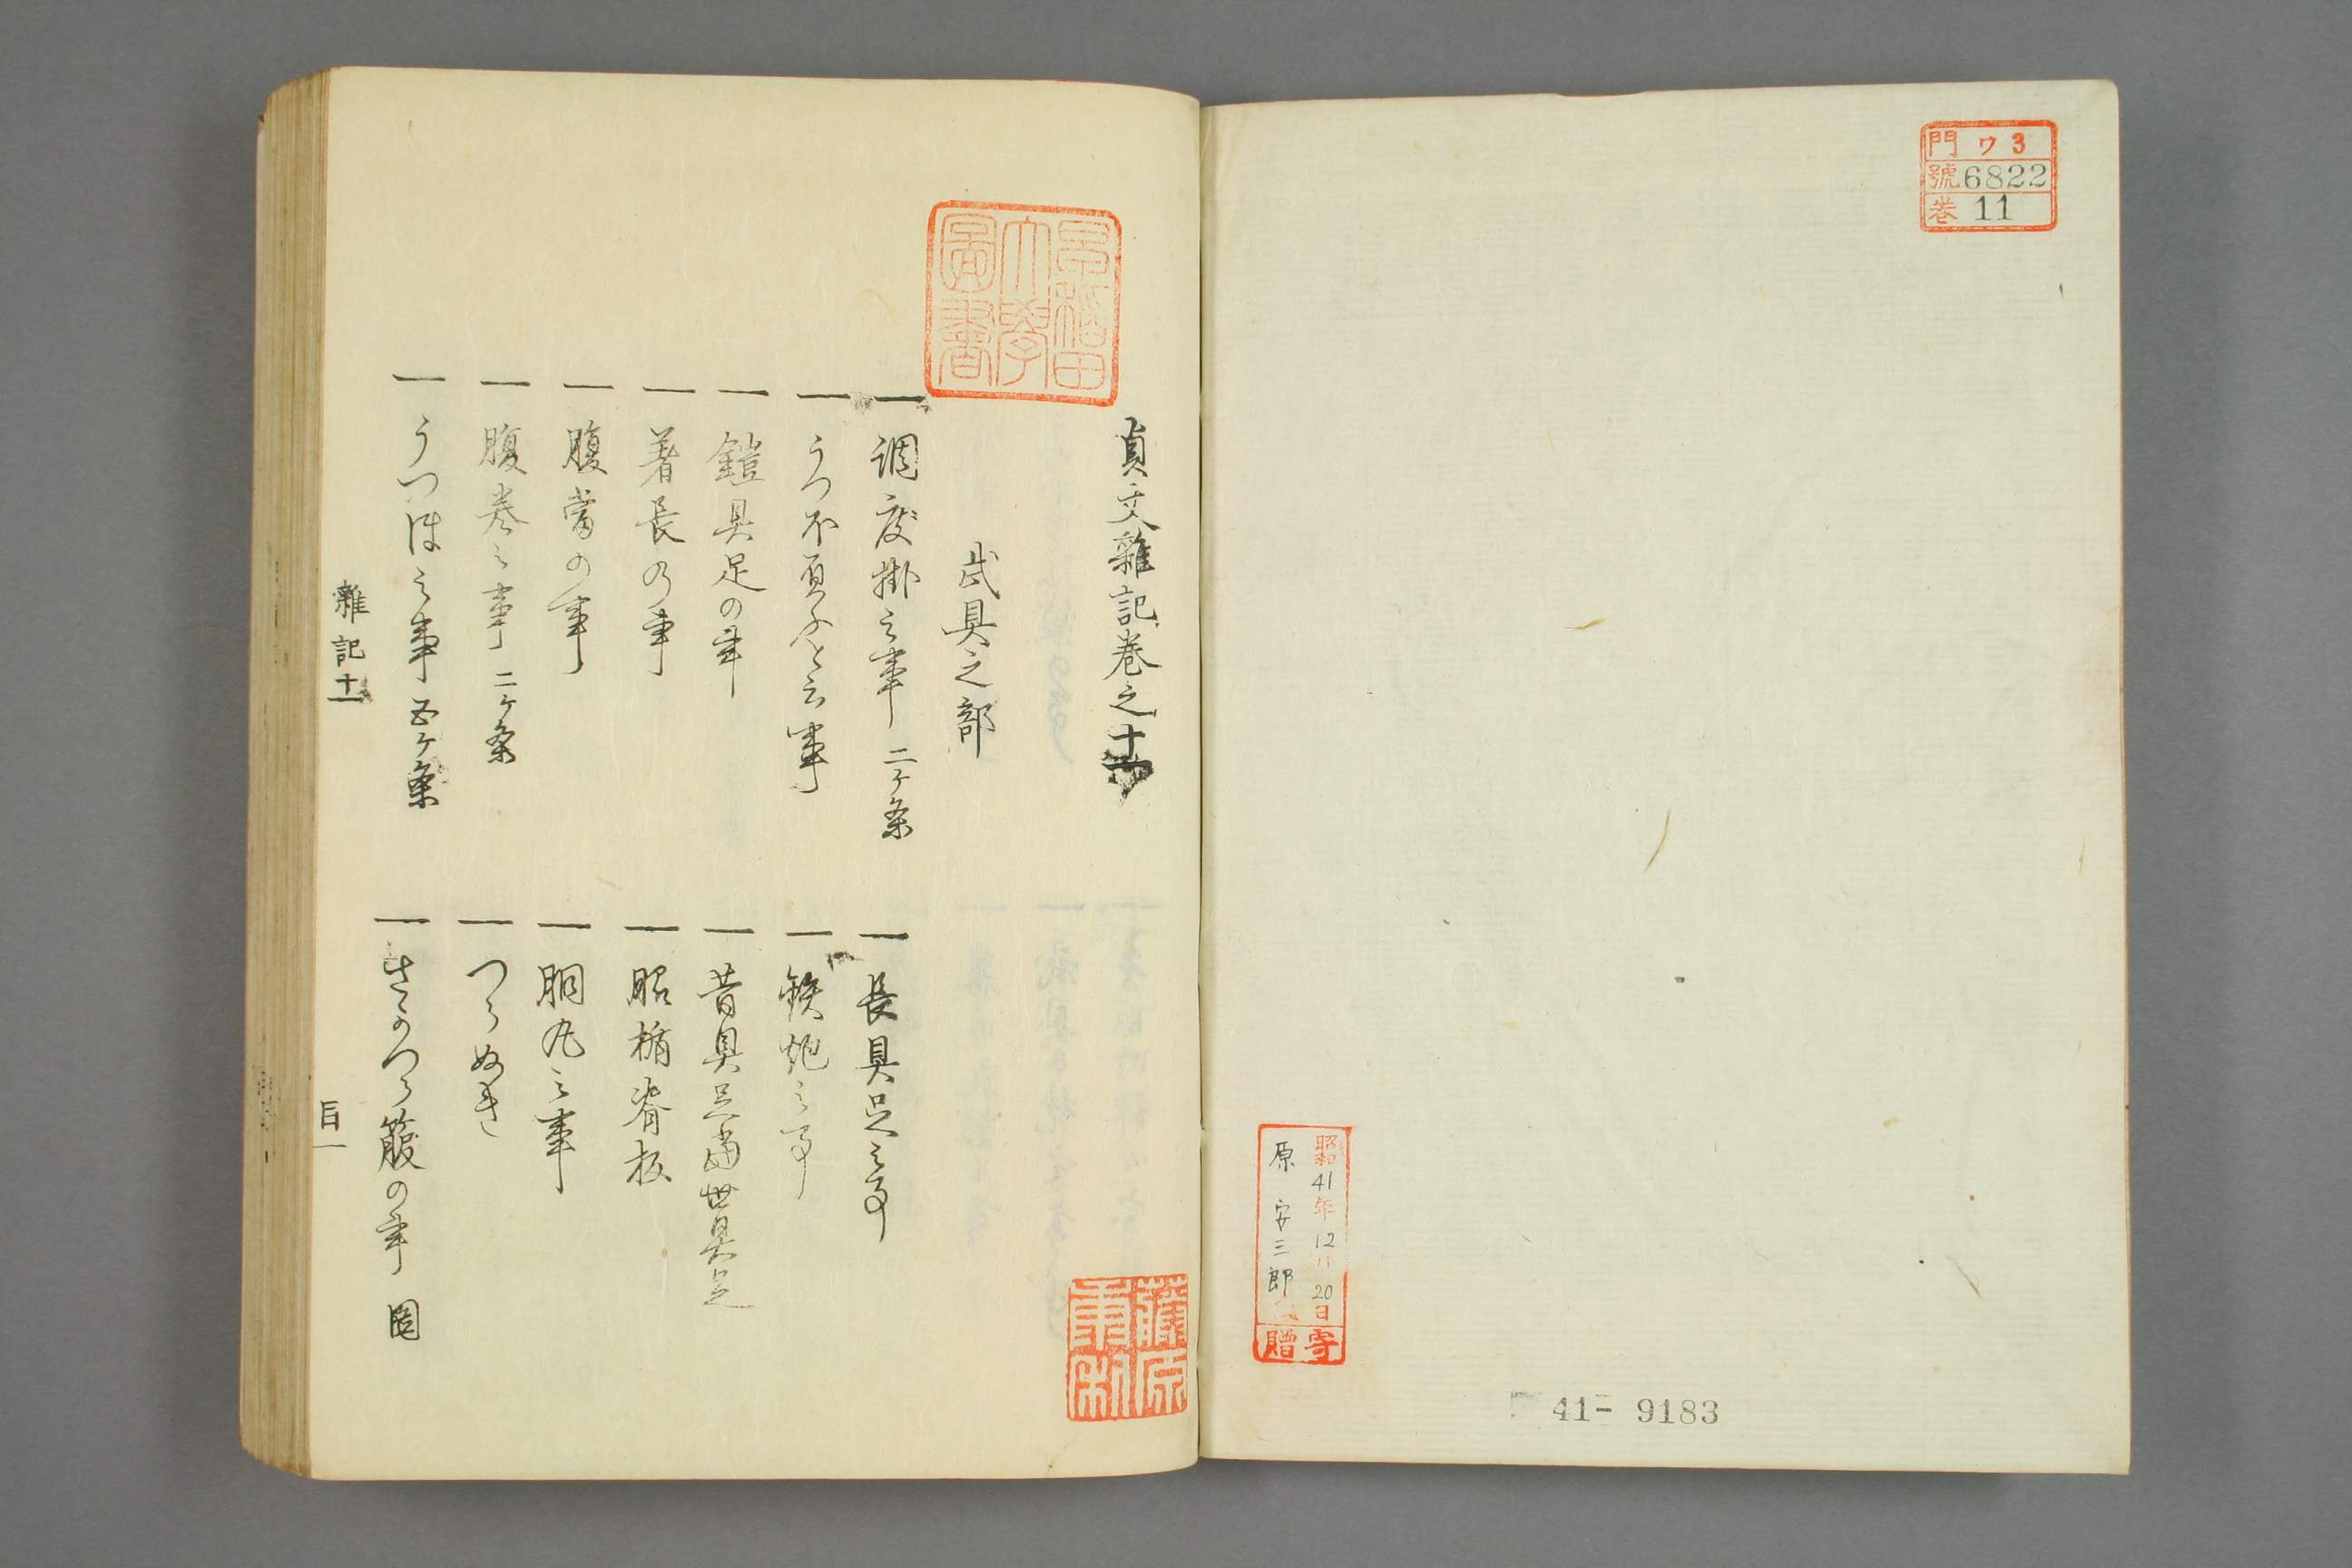 門 ワ3
號 6822
巻 11
昭和41年12月20日
原安三郎氏
寄贈
41-9183
早稲田
大學
圖書
貞丈雜記巻之十一
武具之部
一 調度掛之事 二ケ条
一 長具足之事
一 うつ不負ふと云事
一 鉄炮之事
一 鎧具足の事
一 昔具足當世具足
一 著長の事
一 脇楯脊板
一 腹當の事
一 胴丸之事
一 腹巻之事 二ケ条
一 つらぬき
一 うつほ之事 五ケ条
一 さかつら箙の事 図
雜記十一
目一
藤原